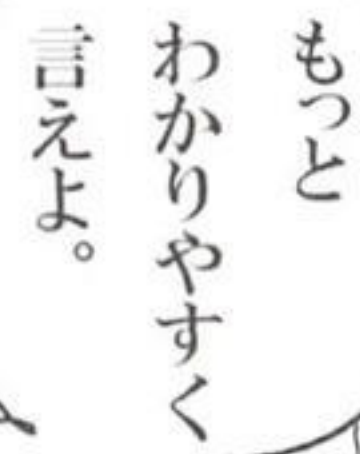 もっと
わかりやすく
言えよ。